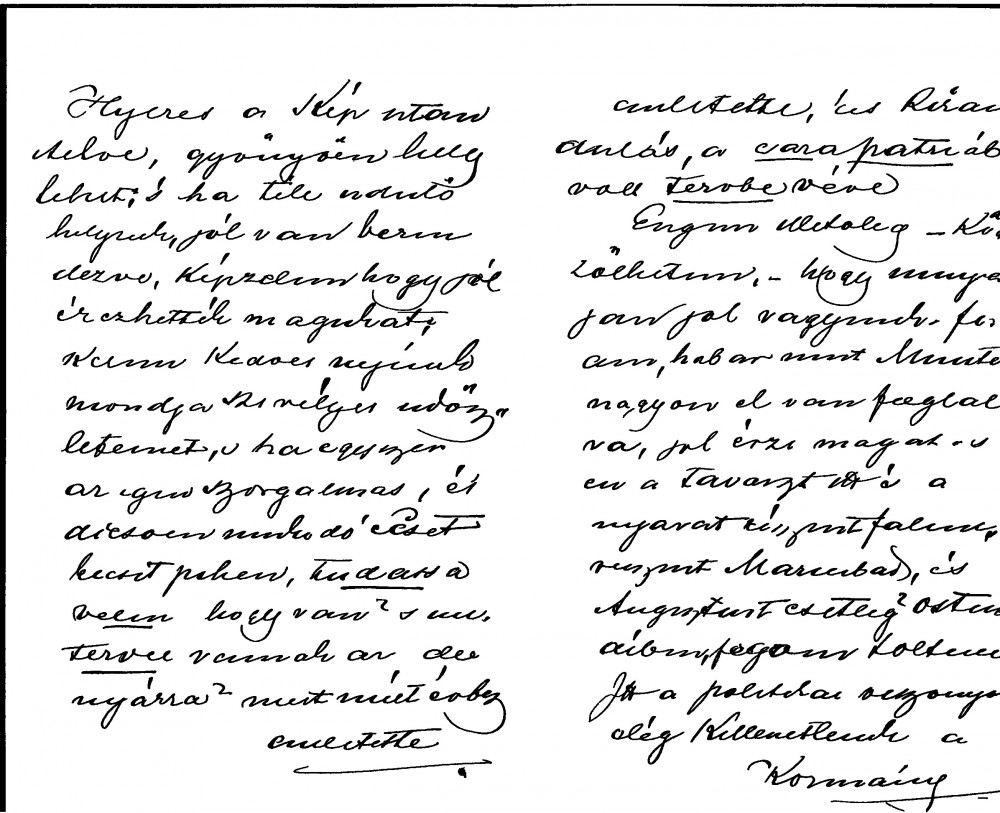 Hyeres a Kép utan
itelve, gyönyöen hely
lehet; s ha tele üdülö
helynek, jól van beren
dezve, Képzelem hogy jól
érezhették magukat;
Kerem Kedves nejének
mondja szivélyes üdöz„
letemet, s ha egyszer
az igen szorgalmas, és
dicsoen muködó ecset
kecsit pihen, tudassa
velem hogy van? s mi
tervei vannak az idei
nyárra? mert mint évobe
emletette
emletette, és Kiran
dulás, a carapatriáb
volt tervbe véve
Engem illetoleg – Kö
zölhetem, – hogy
jan jol vagyunk. fi
am, habar mint
nagyon el van foglal
va, jol érzi magat. s
en a Tavaszt itt és a
nyarat részint falun,
reszint Marienbad, és
Augusztust esetleg? Osten
deben, fogom tolteni
Itt a politikai viszonyo
elég Kellemetlenek a
Kormány